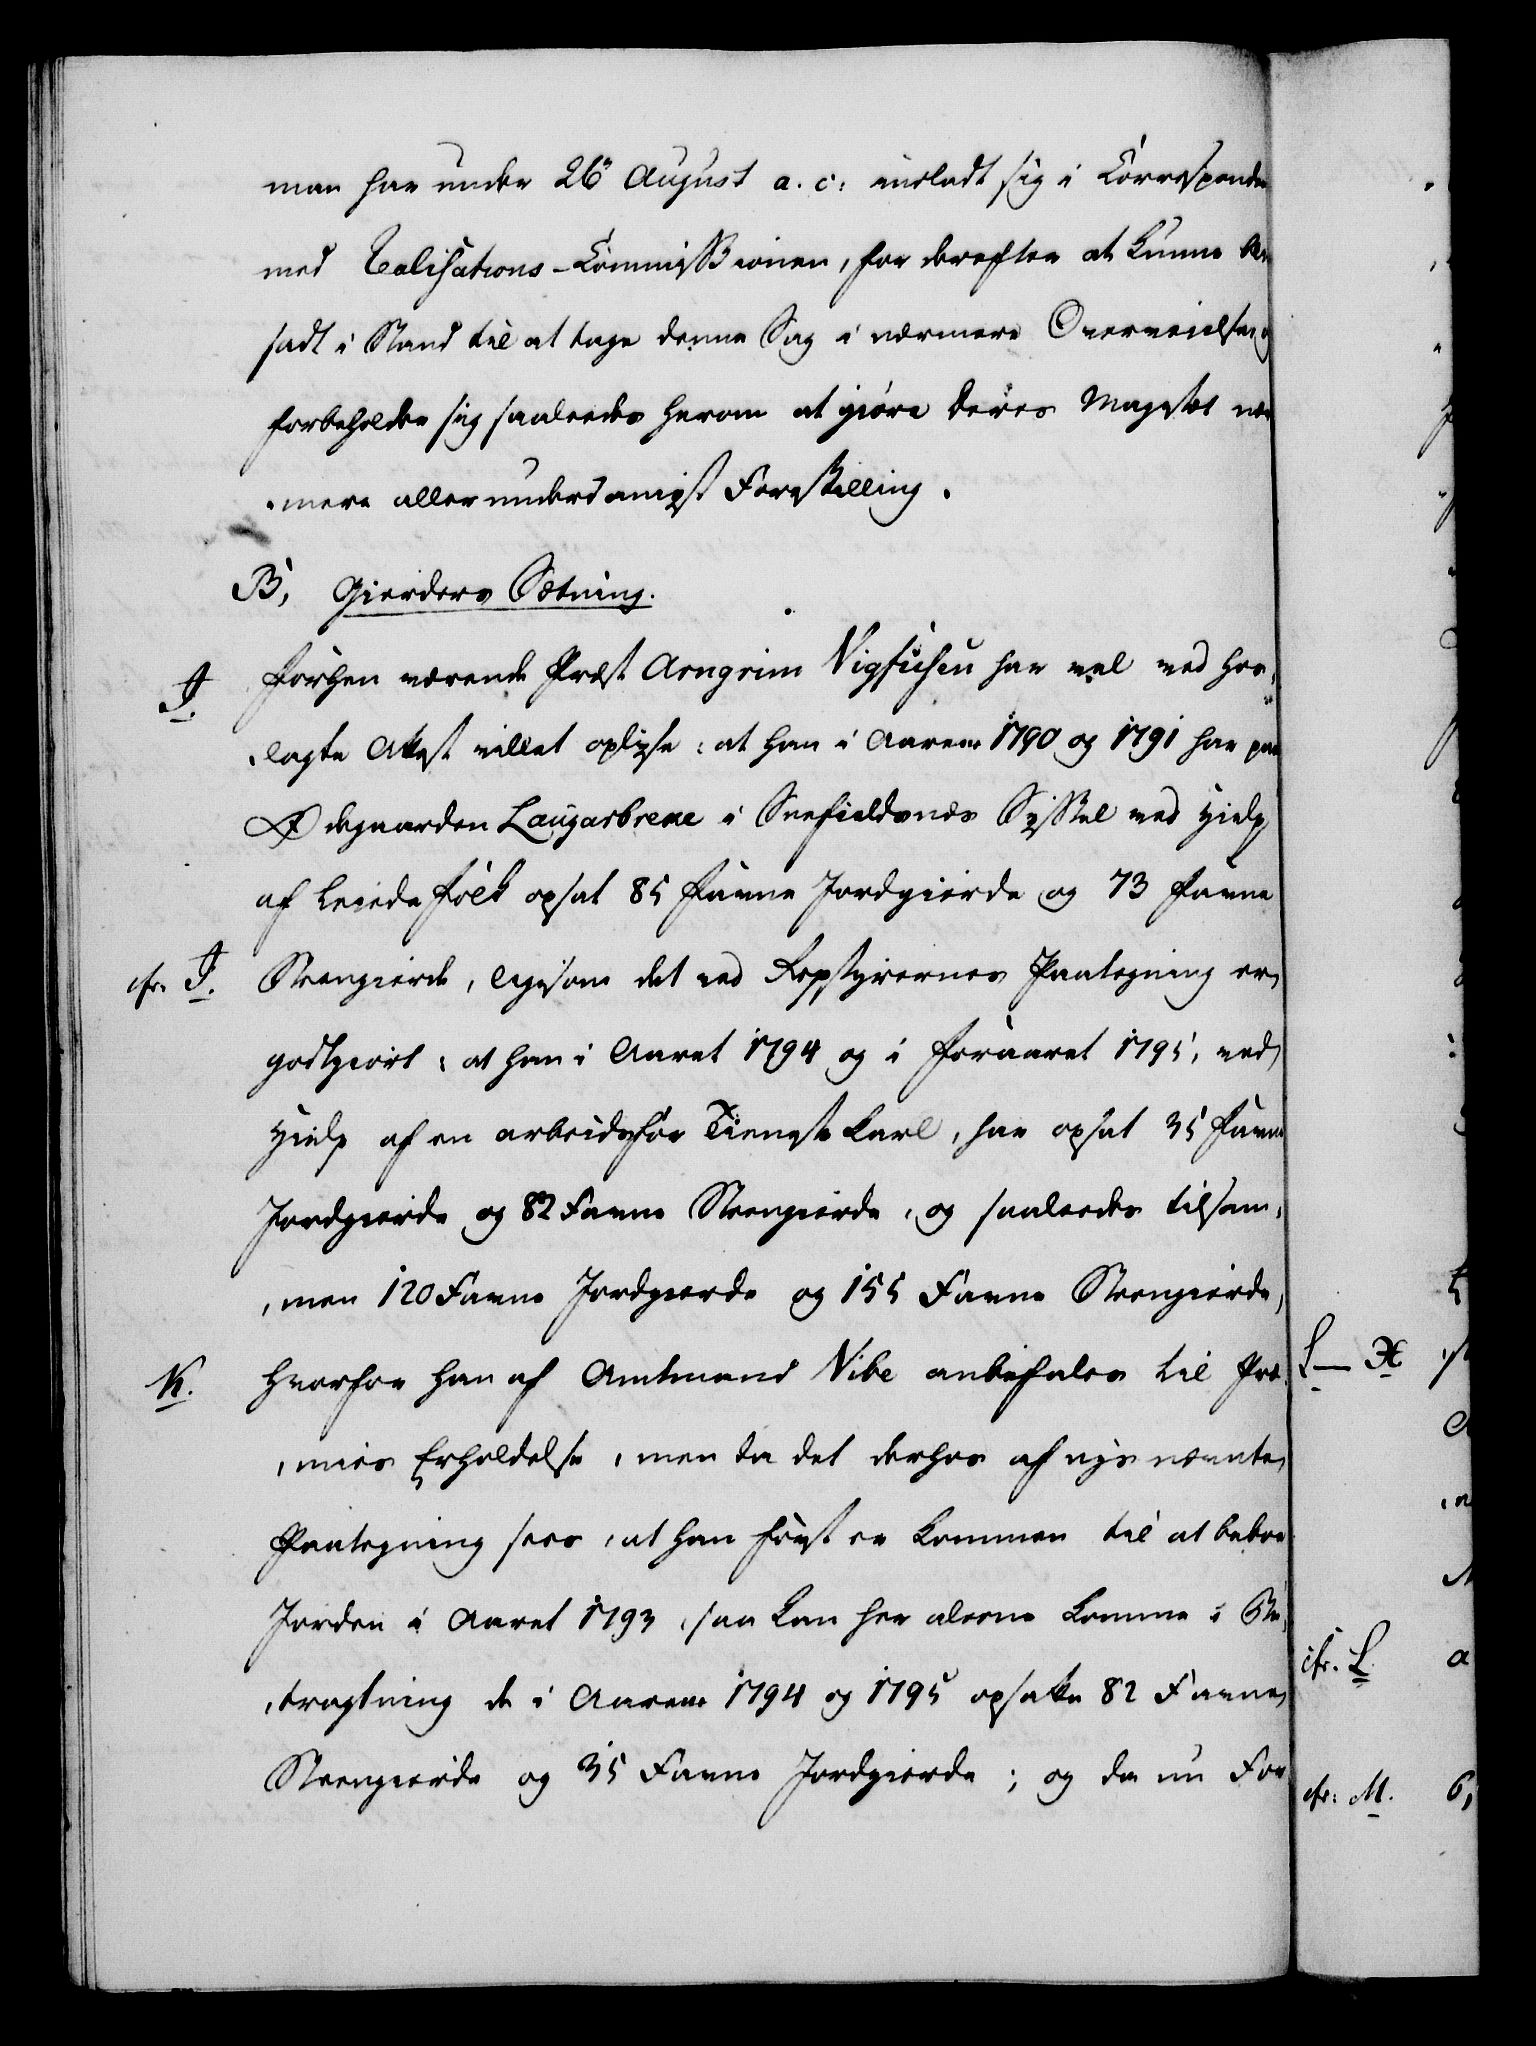 man har under 26' August a. c: indladt sig i Correspondce
med Realisations-Commissionen, for derefter at kunne bli
sadt i Stand til at tage denne Sag i nærmere Overveielse, og
forbeholder sig saaledes herom at giöre Deres Majestet nær
„mere allerunderdanigst Forestilling.
B, Gierders Sætning.
J. Forhen værende Præst Arngrim Vigfusen har vel ved hos„
„lagte Attest villet oplyse: at han i Aarene 1790 og 1791 har paa
Ødegaarden Laugarbrekke i Snefieldsnæs Syssel ved Hielp
af leiede Folk opsat 85 Favne Jordgierde og 73 Favne
cfr. J. Steengierde, ligesom det ved Repstyrernes Paategning er
godtgiort: at han i Aaret 1794 og i Foraaret 1795, ved
Hielp af en arbeidsfør Tieneste Karl, har opsat 35 Favne
Jordgierde og 82 Favne Steengierde, og saaledes tilsam„
„men 120 Favne Jordgierde og 155 Favne Steengierde,
K. hvorfor han af Amtmand Vibe anbefales til Præ„
„mies Erholdelse, men da det derhos af nys nævnte
Paategning sees, at han først er kommen til at beboe
Jorden i Aaret 1793, saa kan her aleene komme i Be„
„tragtning de i Aarene 1794 og 1795 opsatte 82 Favne
Steengierde og 35 Favne Jordgierde; og da nu For
L — X
cfr. L.
cfr: M.